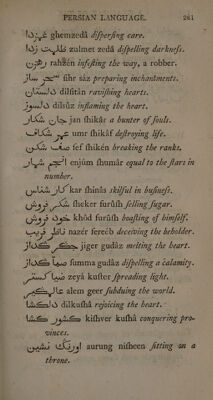 PERSIAN LANGUAGE. 281
غمزدا ghemzedâ dispelling care.
ظلمت زدا zulmet zedâ dispelling darkness.
رهزن rahzen infesting the way, a robber.
سحر ساز fihr sâz preparing inchantments.
دلستان dilsitân ravishing hearts.
دلسوز dilsûz inflaming the heart.
جان شکار jan shikâr a hunter of souls.
عمر شکاف umr shikâf destroying life.
صف شکن sef shikén breaking the ranks.
انجم شمار enjüm shumâr equal to the stars in
number.
کار شناس kar shinâs skilful in business.
شکر فروش sheker furûsh selling sugar.
خود فروش khôd furûsh boasting of himself.
ناظر فریب nazér fereeb deceiving the beholder.
جگر گداز jiger gudâz melting the heart.
صما گداز summa gudâz dispelling a calamity.
ضیا گستر zeyâ kuster spreading light.
عالم گیر alem geer subduing the world.
دلکشا dilkushâ rejoicing the heart.
کشور کشا kishver kushâ conquering pro-
vinces.
اورنگ نشین aurung nisheen sitting on a
throne.